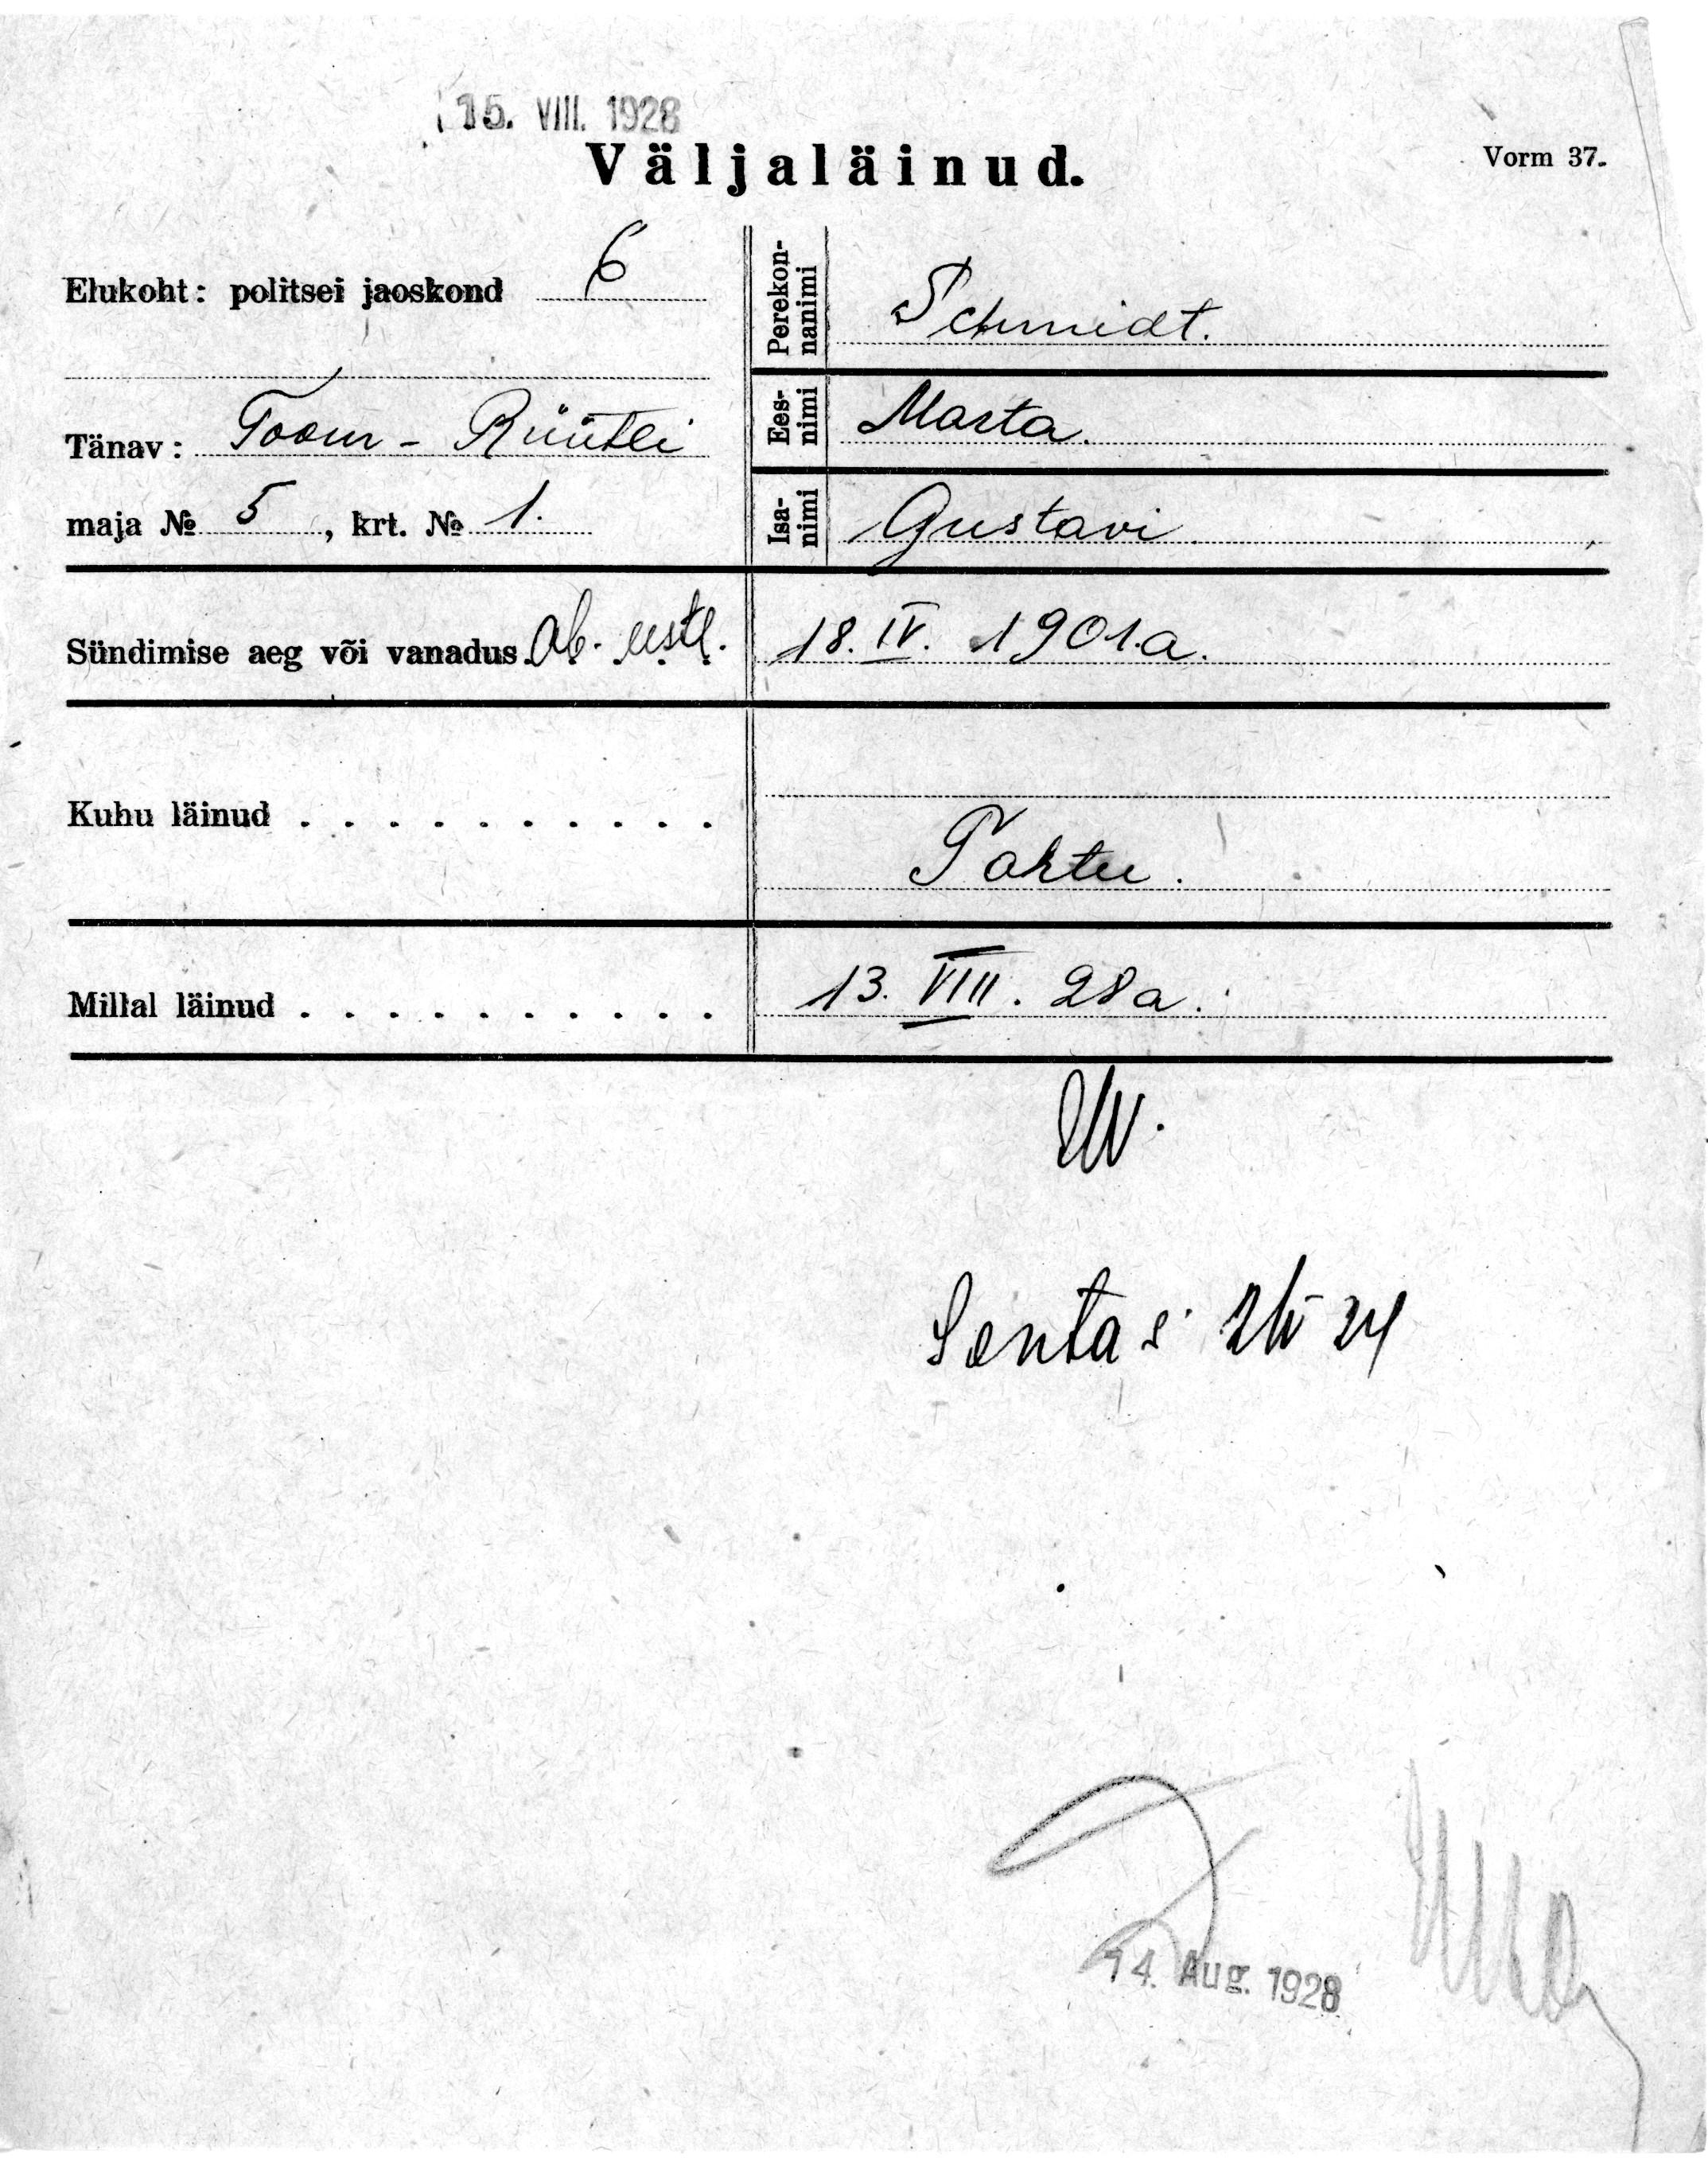 15. VIII. 1928
Väljaläinud.
Vorm 37.
Elukoht: politsei jaoskond 6
Perekon-
nanimi
Schmidt.
Tänav: Toom - Rüütli
Ees-
nimi
Marta.
maja № 5, krt. № 1.
Isa-
nimi
Gustavi
Sündimise aeg või vanadus. ab. 18. IV. 1901.a.
Kuhu läinud . . . . . . . . . .
Tartu.
Millal läinud . . . . . . . . . . 13. VIII. 28 a.
14. Aug. 1928